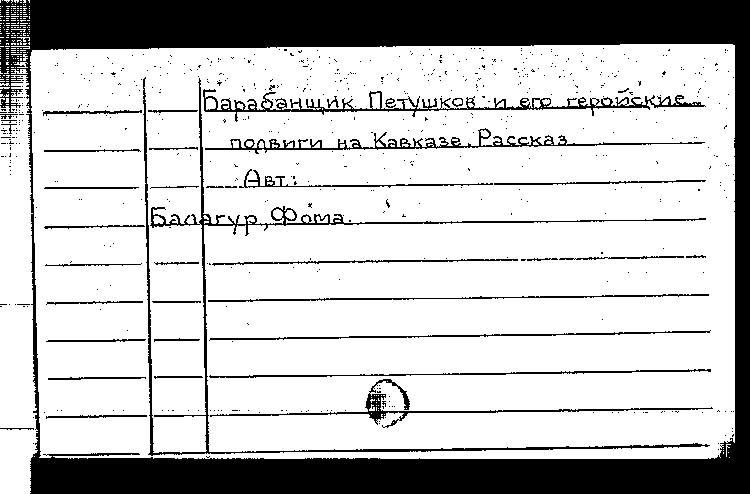 Барабанщик Петушков и его геройские
подвиги на Кавказе. Рассказ.
Авт.:
Балагур, Фома.